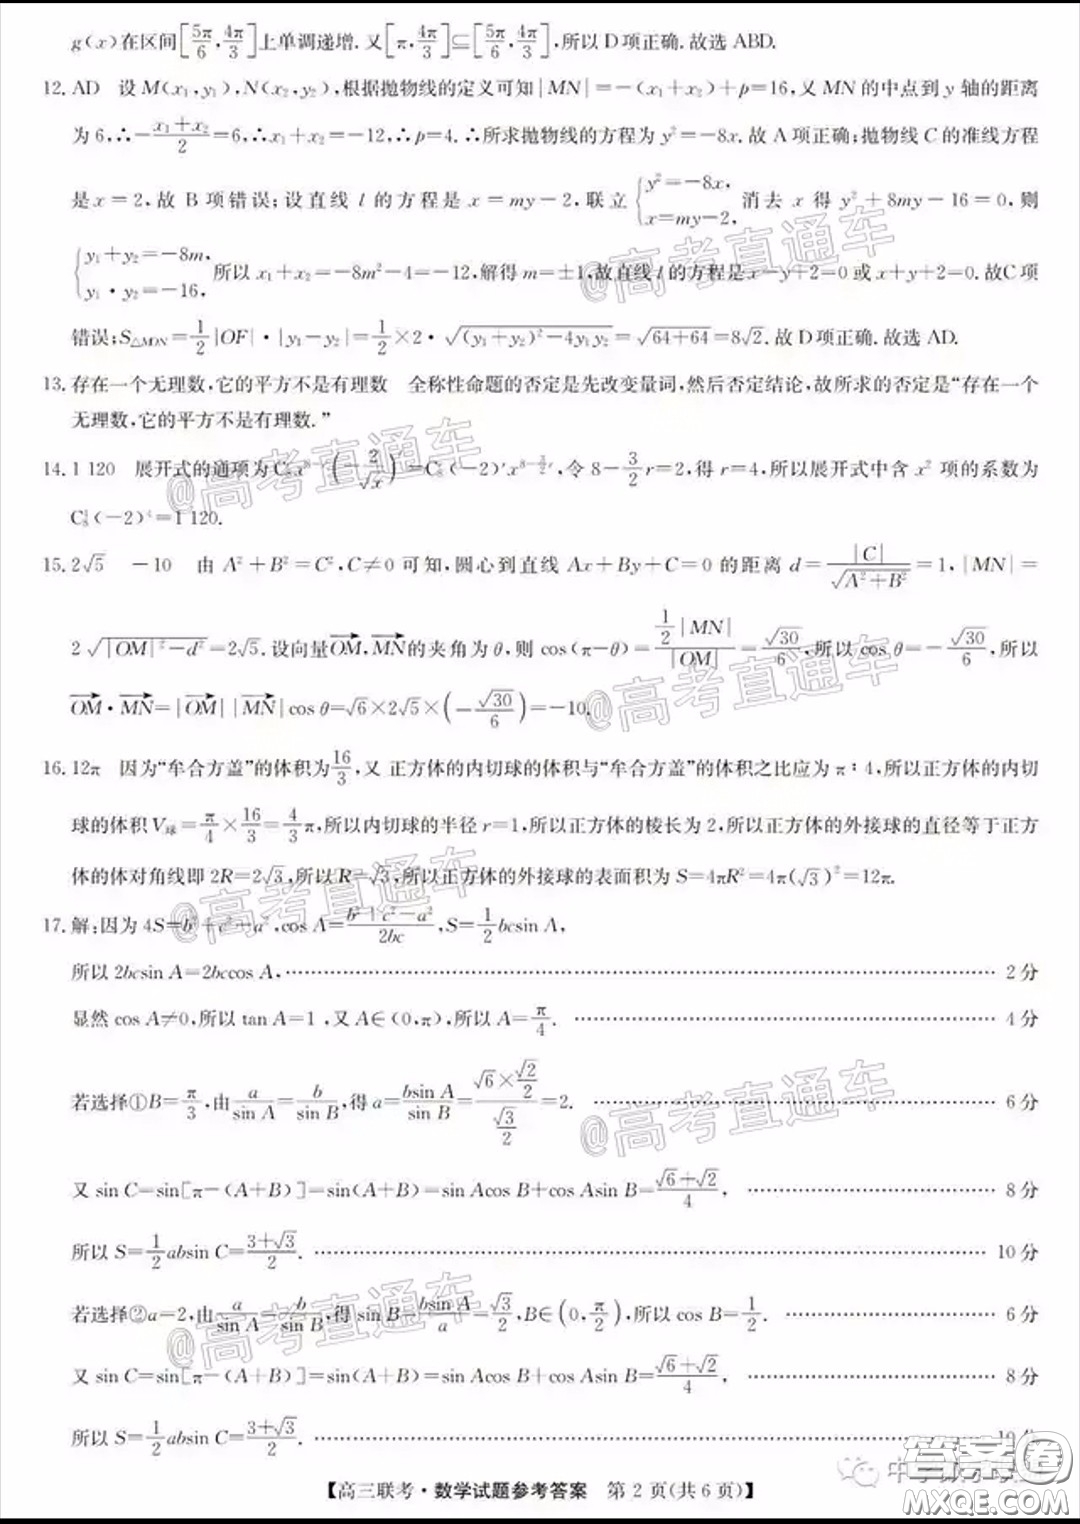 g(x)在区间[5π/6,4π/3]上单调递增.又[π,4π/3]⊆[5π/6,4π/3],所以D项正确.故选 ABD.
12. AD 设 M(x₁,y₁),N(x₂,y₂),根据抛物线的定义可知|MN|=-(x₁+x₂)+p=16,又 MN 的中点到 y 轴的距离
为 6,∴-(x₁+x₂)/2=6,∴x₁+x₂=-12,∴p=4.∴所求抛物线的方程为 y²=-8x.故 A 项正确;抛物线 C 的准线方程
是 x=2,故 B 项错误;设直线 l 的方程是 x=my-2,联立{y²=-8x, x=my-2, 消去 x 得 y²+8my-16=0,则
{y₁+y₂=-8m, y₁·y₂=-16, 所以 x₁+x₂=-8m²-4=-12,解得 m=±1,故直线 l 的方程是 x-y+2=0 或 x+y+2=0.故C 项
错误;S△MON=1/2|OF|·|y₁-y₂|=1/2×2·√((y₁+y₂)²-4y₁y₂)=√(64+64)=8√2.故 D 项正确.故选 AD.
13. 存在一个无理数,它的平方不是有理数 全称性命题的否定是先改变量词,然后否定结论,故所求的否定是“存在一个
无理数,它的平方不是有理数.”
14. 1 120 展开式的通项为 C₈ʳx⁸⁻ʳ(-2/√x)ʳ=C₈ʳ(-2)ʳx^(8-3/2 r),令 8-3/2 r=2,得 r=4,所以展开式中含 x² 项的系数为
C₈⁴(-2)⁴=1 120.
15. 2√5 -10 由 A²+B²=C²,C≠0 可知,圆心到直线 Ax+By+C=0 的距离 d=|C|/√(A²+B²)=1,|MN|=
2√(|OM|²-d²)=2√5.设向量OM→,MN→的夹角为 θ,则 cos(π-θ)=(1/2|MN|)/|OM|=√30/6,所以 cos θ=-√30/6,所以
OM→·MN→=|OM→||MN→|cos θ=√6×2√5×(-√30/6)=-10.
16. 12π 因为“牟合方盖”的体积为16/3,又 正方体的内切球的体积与“牟合方盖”的体积之比应为 π:4,所以正方体的内切
球的体积 V球=π/4×16/3=4/3π,所以内切球的半径 r=1,所以正方体的棱长为 2,所以正方体的外接球的直径等于正方
体的体对角线即 2R=2√3,所以 R=√3,所以正方体的外接球的表面积为 S=4πR²=4π(√3)²=12π.
17. 解:因为 4S=b²+c²-a²,cos A=(b²+c²-a²)/2bc,S=1/2bcsin A,
所以 2bcsin A=2bccos A, …… 2 分
显然 cos A≠0,所以 tan A=1,又 A∈(0,π),所以 A=π/4. …… 4 分
若选择①B=π/3,由 a/sin A=b/sin B,得 a=bsin A/sin B=(√6×√2/2)/(√3/2)=2. …… 6 分
又 sin C=sin[π-(A+B)]=sin(A+B)=sin Acos B+cos Asin B=(√6+√2)/4, …… 8 分
所以 S=1/2absin C=(3+√3)/2. …… 10 分
若选择②a=2,由 a/sin A=b/sin B,得 sin B=bsin A/a=√3/2,B∈(0,π/2),所以 cos B=1/2. …… 6 分
又 sin C=sin[π-(A+B)]=sin(A+B)=sin Acos B+cos Asin B=(√6+√2)/4, …… 8 分
所以 S=1/2absin C=(3+√3)/2. …… 10 分
【高三联考·数学试题参考答案 第 2 页(共 6 页)】
@高考直通车
@高考直通车
@高考直通车
@高考直通车
@高考直通车
@高考直通车
@高考直通车
答案圈
MXQE.COM